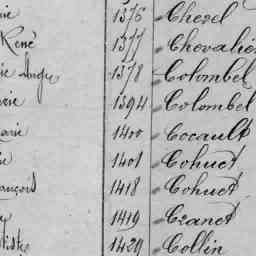 rie 1376 Chesel
René 1377 Chevalie
rie Ange 1378 Colombel
erie 1394 Colombel
arie 1400 Cocault
ie 1401 Cohuet
ançois 1418 Cohuet
1419 Cranet
tiste 1429 Collin